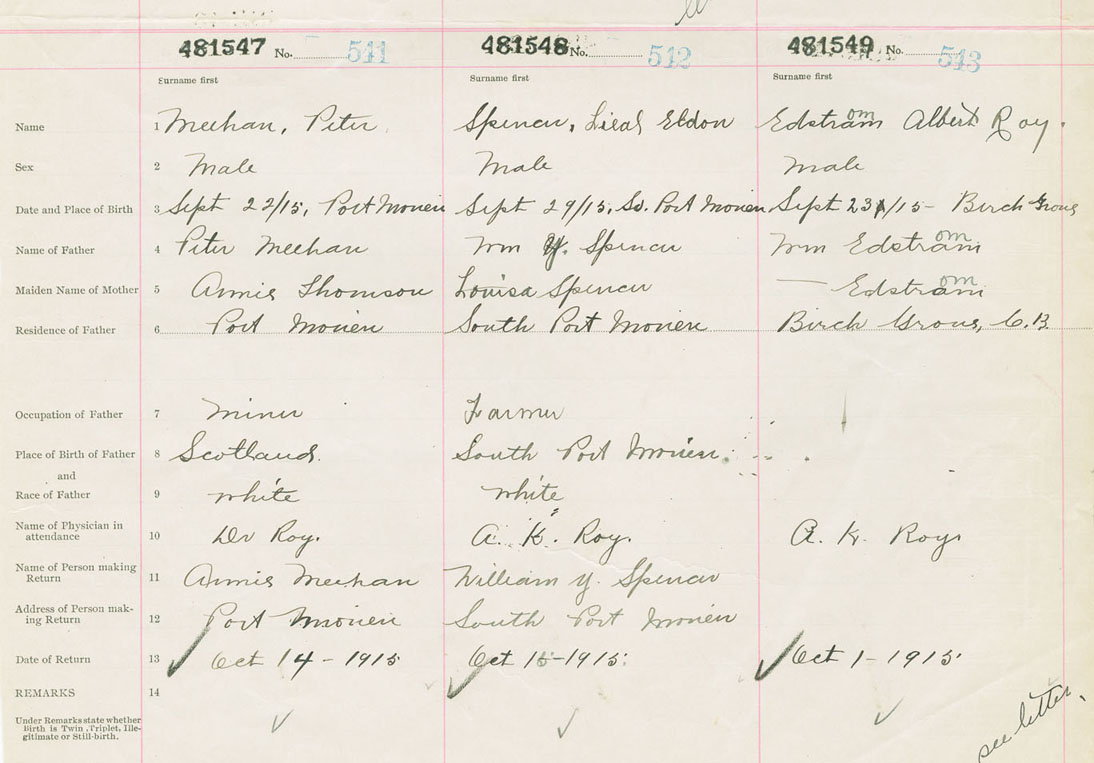 481547 No. 541 481548 No. 542 481549 No. 543
Surname first Surname first Surname first
Name 1 Meehan, Peter Spencer, Eldon Edstram om Albert Roy.
Sex 2 Male Male Male
Date and Place of Birth 3 Sept 22/15, Port Morien Sept 29/15, So. Port Morien Sept 23/15 - Birch Grove
Name of Father 4 Peter Meehan Wm Y. Spencer Wm Edstram om
Maiden Name of Mother 5 Annie Thomson Louisa Spencer — Edstram om
Residence of Father 6 Port Morien South Port Morien Birch Grove, C.B.
Occupation of Father 7 Miner Farmer
Place of Birth of Father 8 Scotland. South Port Morien.
and
Race of Father 9 white white
Name of Physician in attendance 10 Dr Roy. A. K. Roy. A. K. Roy.
Name of Person making Return 11 Annie Meehan William Y. Spencer
Address of Person making Return 12 Port Morien South Port Morien
Date of Return 13 Oct 14 - 1915 Oct 15 - 1915. Oct 1 - 1915.
REMARKS 14
Under Remarks state whether
Birth is Twin, Triplet, Ille-
gitimate or Still-birth.
see letter.